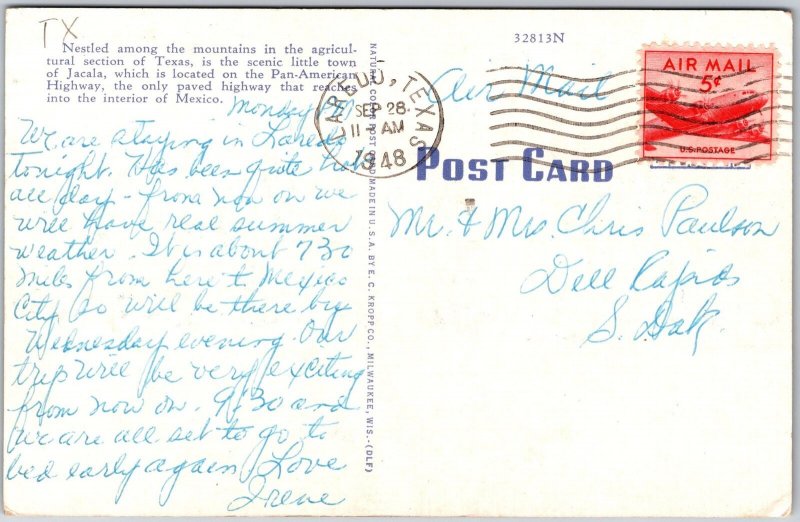 TX
Nestled among the mountains in the agricul-
tural section of Texas, is the scenic little town
of Jacala, which is located on the Pan-American
Highway, the only paved highway that reaches
into the interior of Mexico.
Monday PM
We are staying in Laredo
tonight. Has been quite hot
all day - from now on we
will have real summer
weather. It is about 730
miles from here to Mexico
City so will be there by
Wednesday evening. Our
trip will be very exciting
from now on. 9:30 and
we are all set to go to
bed early again. Love
Irene
NATURAL COLOR POST CARD MADE IN U.S.A. BY E. C. KROPP CO., MILWAUKEE, WIS.-(DLF)
32813N
LAREDO, TEXAS
SEP 28
11 AM
1948
Air Mail
AIR MAIL
5¢
U.S. POSTAGE
POST CARD
Mr. & Mrs. Chris Paulson
Dell Rapids
S. Dak.